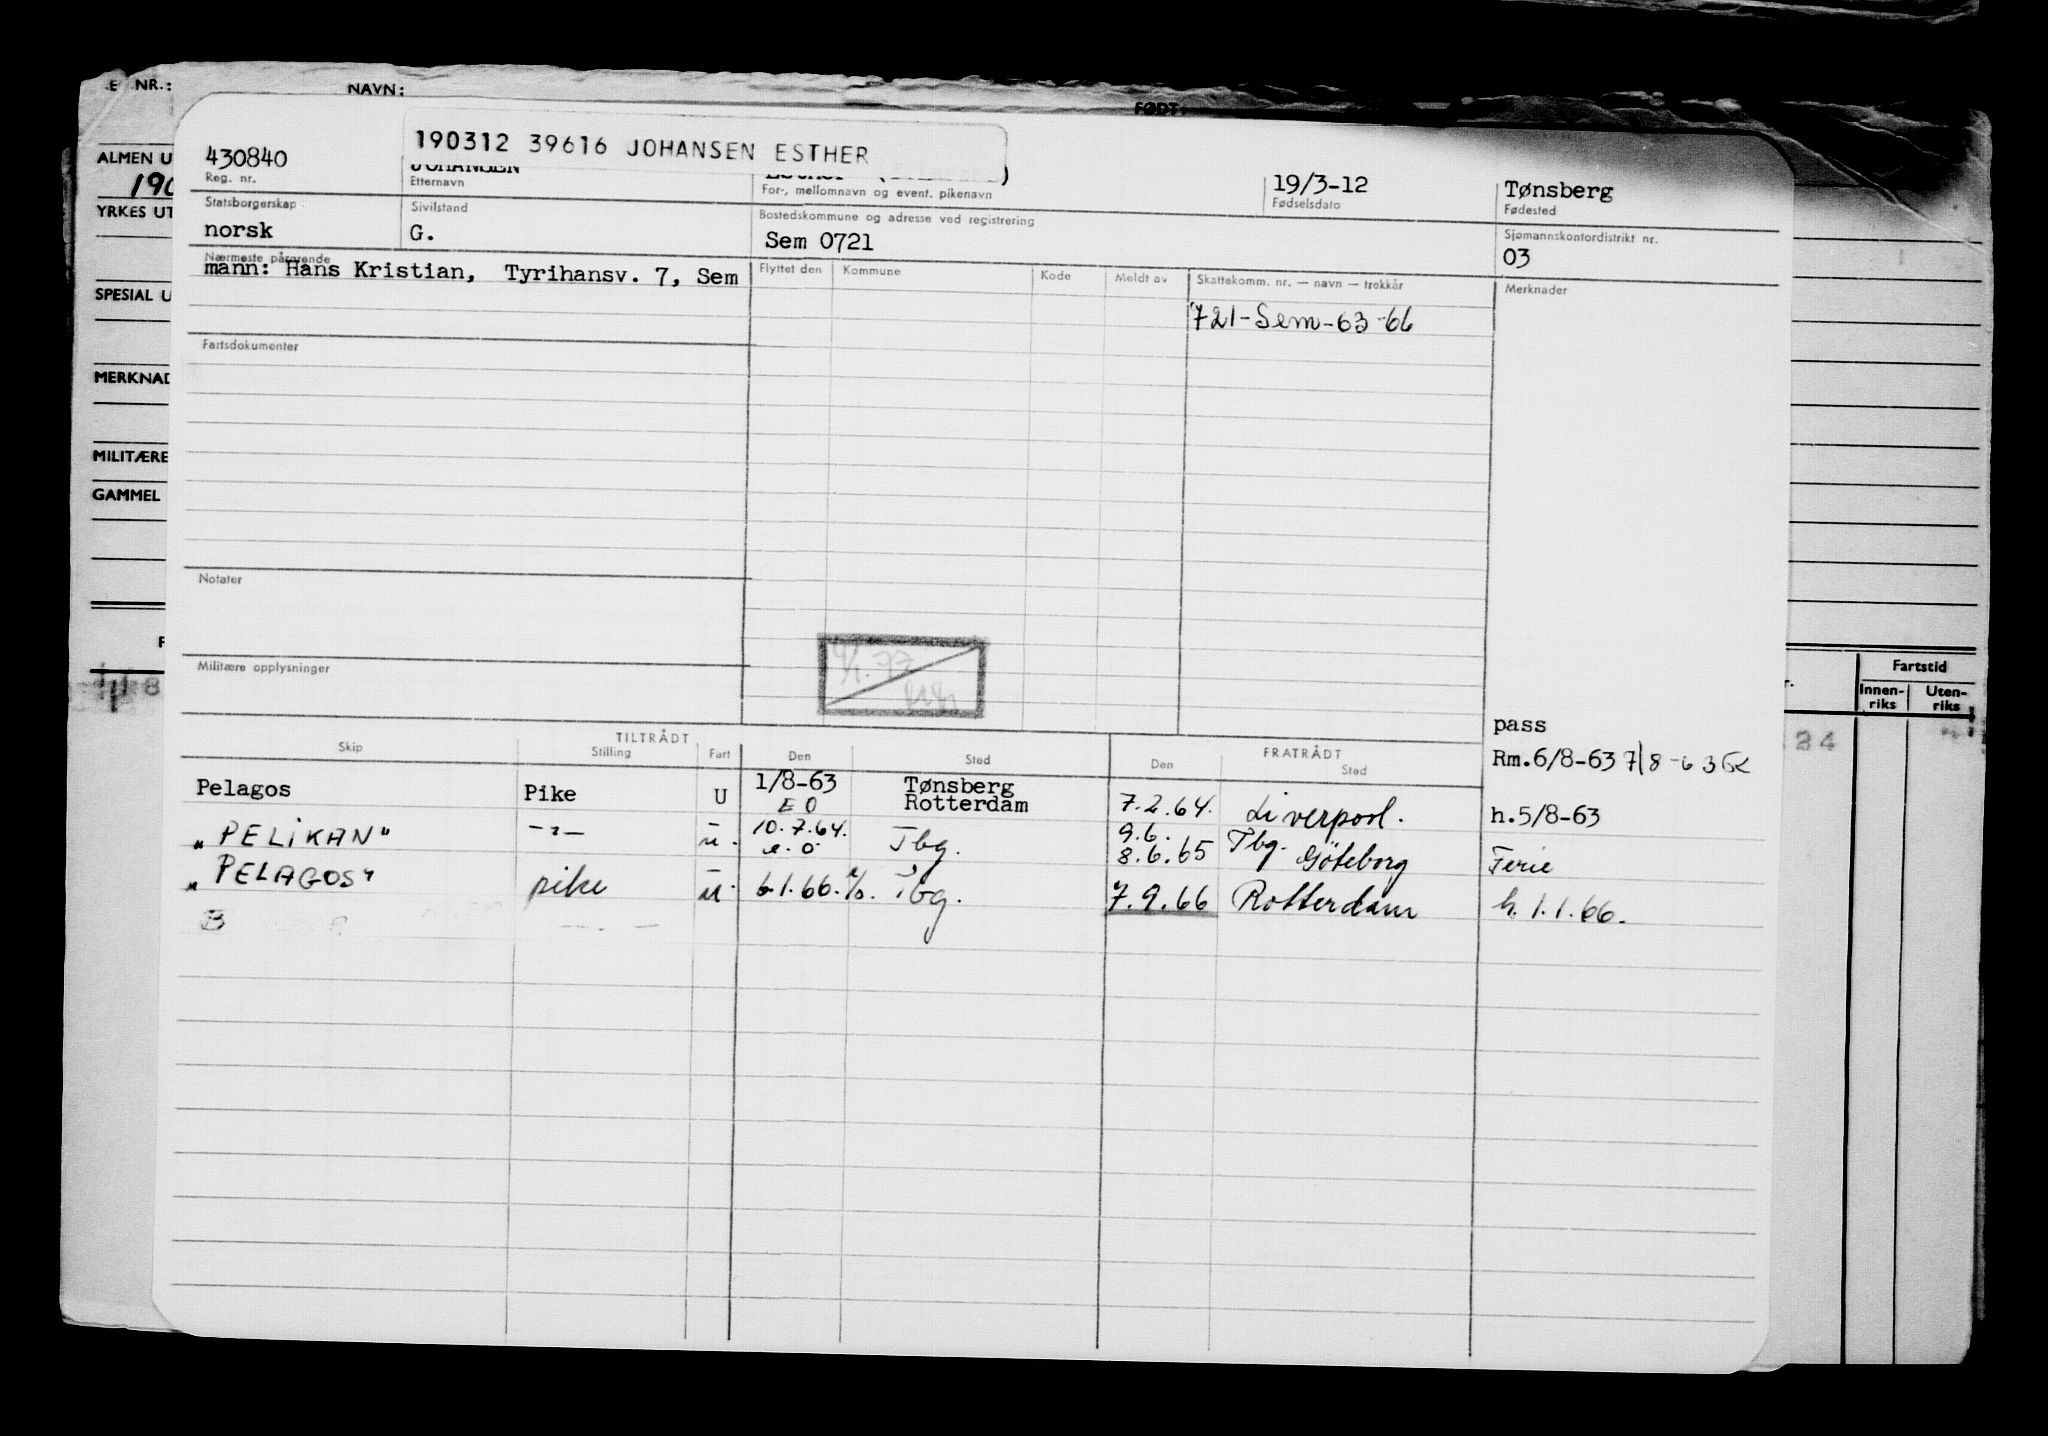 NR.: NAVN: FØDT:
ALMEN U
YRKES UT
SPESIAL U
MERKNAD
MILITÆRE
GAMMEL
Fartstid
Innen-riks Uten-riks
190312 39616 JOHANSEN ESTHER
430840 JOHANSEN 19/3-12 Tønsberg
Reg. nr. Etternavn For-, mellomnavn og event. pikenavn Fødselsdato Fødested
Statsborgerskap Sivilstand Bostedskommune og adresse ved registrering Sjømannskontordistrikt nr.
norsk G. Sem 0721 03
Nærmeste pårørende Flyttet den Kommune Kode Meldt av Skattekomm. nr. — navn — trekkår Merknader
mann: Hans Kristian, Tyrihansv. 7, Sem
721-Sem-63-66
Fartsdokumenter
Notater
Militære opplysninger
pass
Rm.6/8-63 7/8-63
TILTRÅDT FRATRÅDT
Skip Stilling Fart Den Sted Den Sted
Pelagos Pike U 1/8-63 Tønsberg
EO Rotterdam 7.2.64. Liverpool. h.5/8-63
"PELIKAN" -"- u. 10.7.64. e.o Tbg. 9.6. 8.6.65 Tbg. Göteborg Ferie
"PELAGOS" pike u. 6.1.66. Tbg. 7.9.66 Rotterdam h. 1.1.66.
B